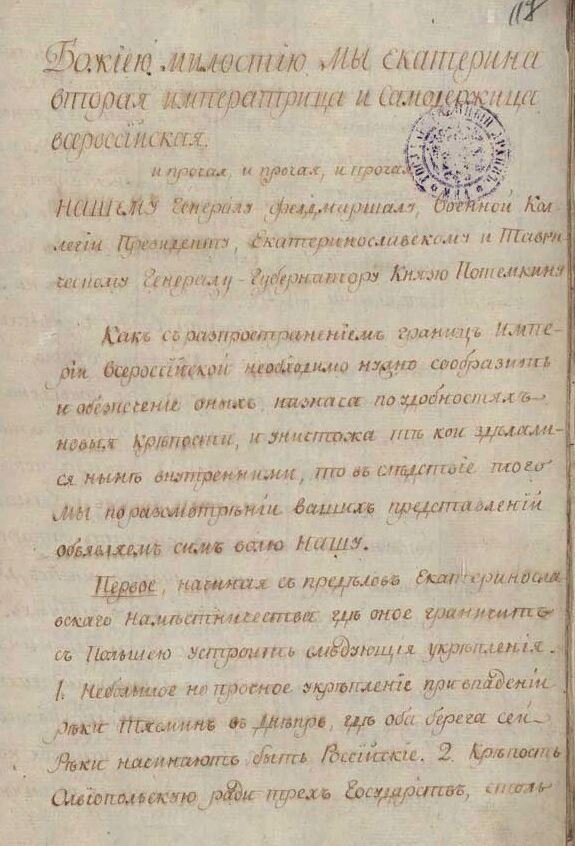 118
Божіею милостію мы Екатерина
вторая императрица и Самодержица
всероссійская.
и прочая, и прочая, и прочая
НАШЕМУ Генералу фелдмаршалу, Военной Кол
легіи Президенту, Екатеринославскому и Таври
ческому Генералу-Губернатору Князю Потемкину
Какъ съ разпространеніемъ границъ Импе-
ріи Всероссійской необходимо нужно сообразить
и обезпеченіе оныхъ, назнача по удобностямъ
новыя Крѣпости, и уничтожа тѣ кои здѣлали-
ся нынѣ внутренними, то въ слѣдствіе того
Мы по разсмотрѣніи вашихъ представленій
объявляемъ симъ волю НАШУ.
Первое, начиная съ предѣловъ Екатериносла
вскаго Намѣстничества гдѣ оное граничитъ
съ Польшею устроить слѣдующія укрѣпленія.
1. Небольшое но прочное укрѣпленіе при впаденіи
рѣки Тясминъ въ Днѣпръ, гдѣ оба берега сей
Рѣки начинаютъ быть Россійскіе. 2. Крѣпость
Олвіопольскую ради трехъ Государствъ, столь